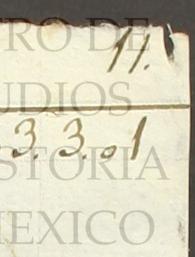 TRO DE
11.
UDIOS
3. 3. o 1
STORIA
MEXICO